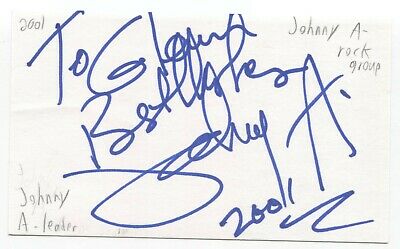 2001
Johnny A-
rock
group
To
Best Wishes
Johnny A.
2001
Johnny
A-leader